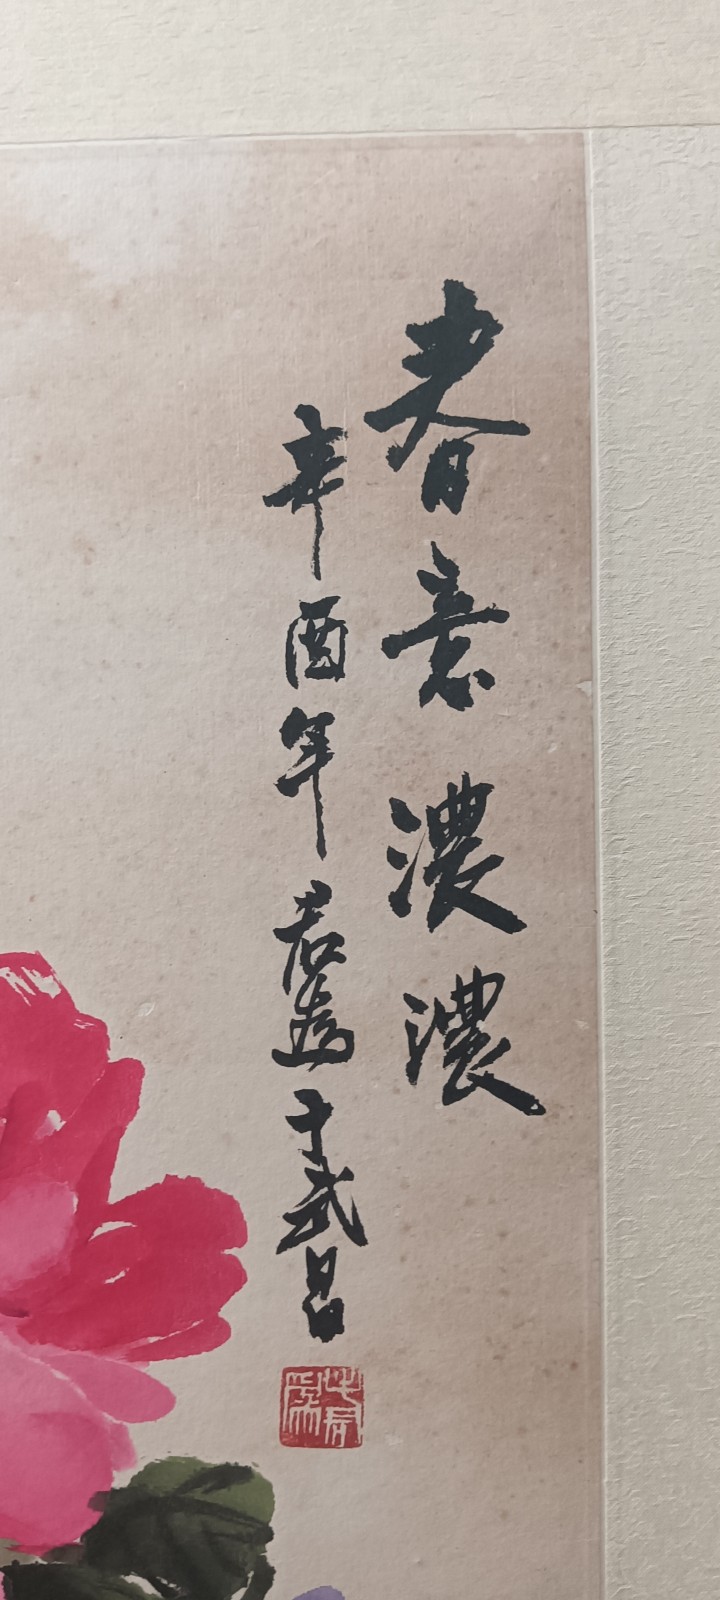 春意濃濃
辛酉年君为于武昌